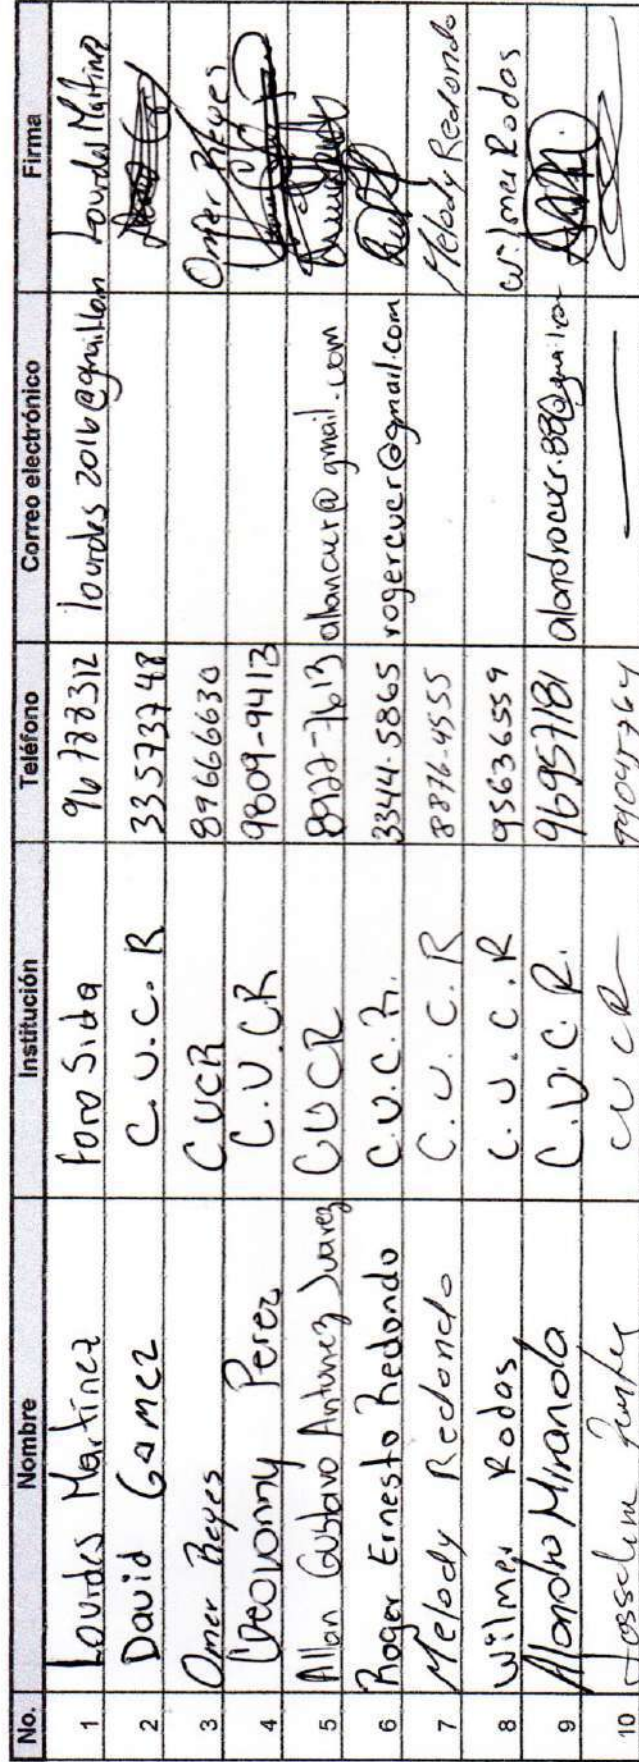 No. Nombre Institución Teléfono Correo electrónico Firma
1 Lourdes Martínez Foro Sida 96788312 lourdes 2016@gmail.com Lourdes Martinez
2 David Gamez C.U.C.R 33573748
3 Omer Reyes CUCR 89666630 Omer Reyes
4 Geovanny Perez C.U.CR 9809-9413
5 Allan Gustavo Antunez Juarez CUCR 8922-7613 allancucr@gmail.com
6 Roger Ernesto Redondo C.U.C.R. 3344-5865 rogercucr@gmail.com
7 Melody Redondo C.U.C.R 8876-4555 Melody Redondo
8 Wilmer Rodas C.U.C.R 95636559 Wilmer Rodas
9 Alondra Miranda C.U.C.R. 96957181
10 CUCR